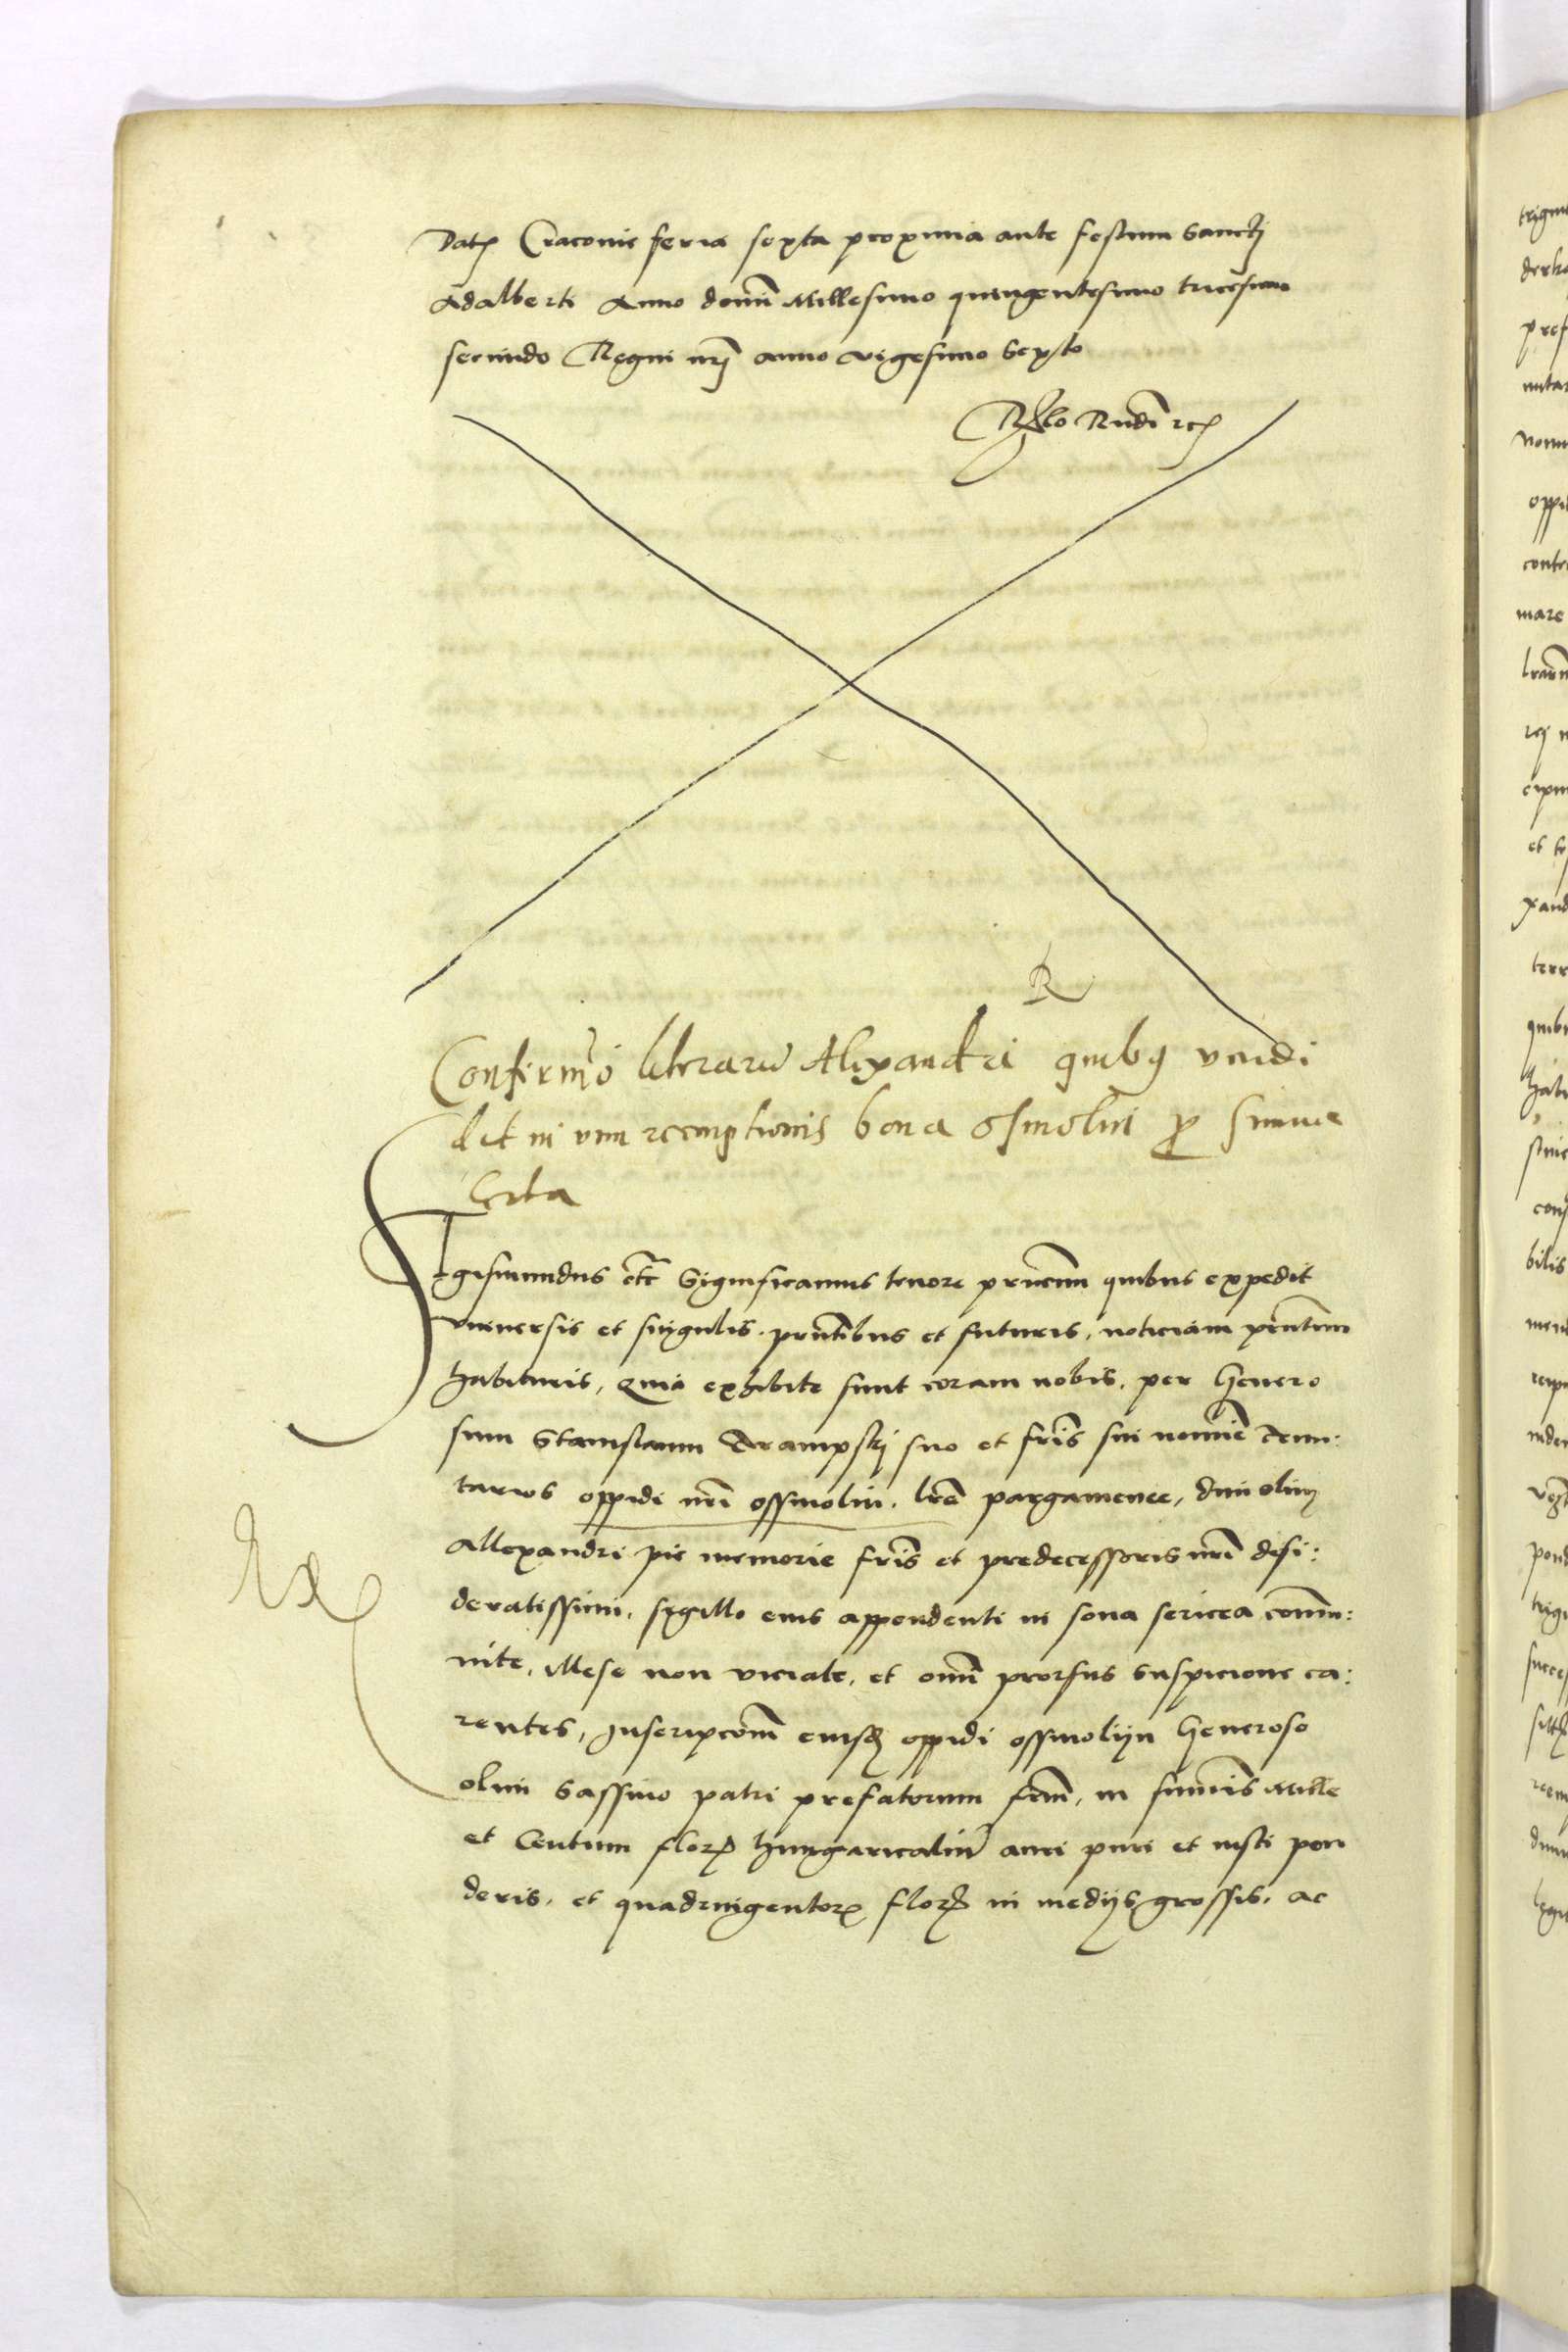 Dat Cracovie feria sexta proxima ante festum Sancti
Adalberti Anno domi Millesimo quingentesimo tricesimo
secundo Regni nri anno vigesimo Sexto
R
Confirmo literaru Alexandri quibus vendi
dit in vim reempcionis bona Osmolin pro summa
Certa
Sigismundus etc Significamus tenore prncium quibus expedit
universis et singulis. prntibus et futuris, noticiam prntium
habituris, Quia exhibite sunt coram nobis. per Genero
sum Stanislaum suo et fris sui nomine tenu:
tarios oppidi nri Ossmolin. lre pargamenee, dini olim
Allexandri pie memorie fris et predecessoris nri desi:
deratissimi, sigillo eius appendenti in sona sericea commu:
nite, illese non viciate, et omi prorsus suspicione ca:
rentes, Inscripcom eiusd oppidi ossmolijn Generoso
olim Sassino patri prefatorum frm, in summis Mille
et Centum flor hungaricaliu auri puri et iusti pon
deris, et quadringentor flor in medijs grossis, ac